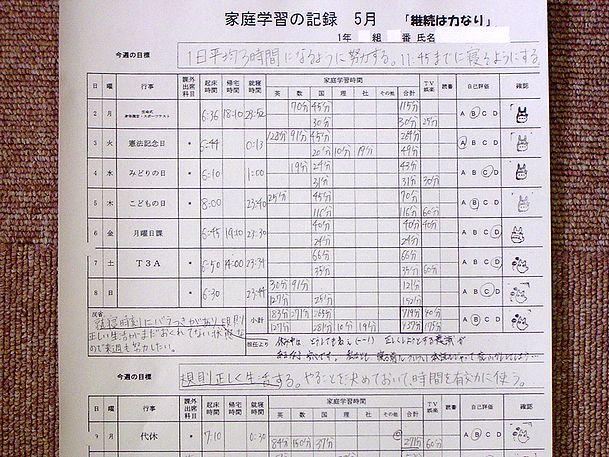 家庭学習の記録 5月 「継続は力なり」
1年 組 番 氏名
今週の目標 1日平均3時間になるように努力する。11:45までに寝るようにする。
日 曜 行事 課外出席科目 起床時間 帰宅時間 就寝時間 家庭学習時間 TV娯楽 読書 自己評価 確認
英 数 国 理 社 その他 合計
2 月 6:36 18:10 23:52 70分 45分 115分 A B C D
30分 30分 25分
3 火 憲法記念日 * 6:44 0:13 128分 91分 45分 264分 A B C D
20分 10分 19分 49分
4 水 みどりの日 * 6:10 1:00 19分 24分 43分 A B C D
31分 31分 30分
5 木 こどもの日 * 8:00 23:40 25分 45分 70分 A B C D
116分 116分 60分
6 金 月曜日課 6:45 19:10 23:30 40分 40分 40分 A B C D
24分 24分
7 土 T3A * 6:50 14:00 23:34 66分 66分 A B C D
35分 35分 60分
8 日 * 6:30 23:44 30分 91分 121分 A B C D
127分 25分 152分
反省 就寝時刻にバラつきがあり規則
正しい生活がまだおくれてない状態な
ので来週も努力したい。
小計 183分 271分 265分 719分 40分 A B C D
127分 281分 10分 19分 437分 175分
担任より
今週の目標 規則正しく生活する。やることを決めておいて時間を有効に使う。
日 曜 行事 課外出席科目 起床時間 帰宅時間 就寝時間 家庭学習時間 TV娯楽 読書 自己評価 確認
英 数 国 理 社 その他 合計
9 月 代休 7:10 0:30 84分 150分 37分 271分 60分 A B C D